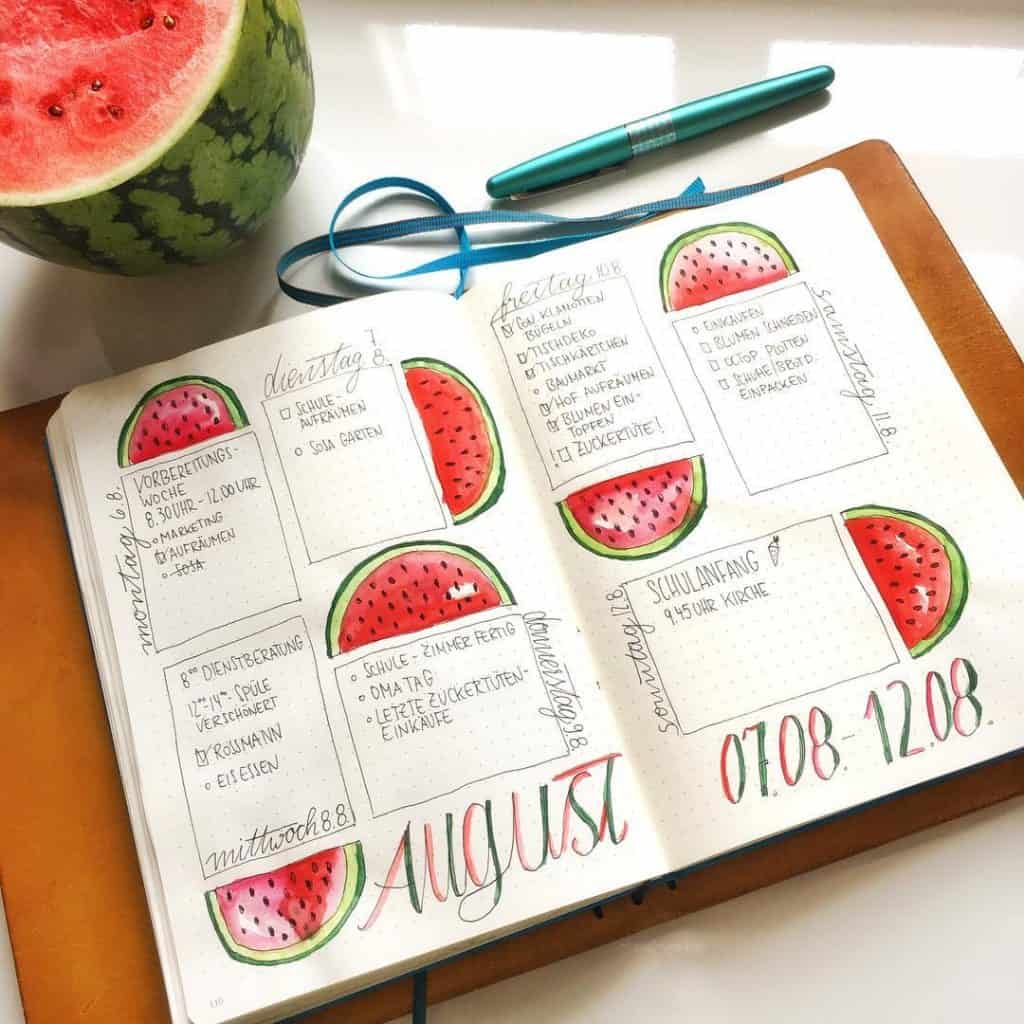 montag 6.8.
VORBEREITUNGS-
WOCHE
8.30 UHR - 12.00 UHR
MARKETING
AUFRÄUMEN
SOSA
dienstag 7.8.
SCHULE-
AUFRÄUMEN
SOSA GARTEN
8⁰⁰ DIENSTBERATUNG
12⁰⁰-14⁰⁰ - SPÜLE
VERSCHÖNERT
ROSSMANN
EIS ESSEN
mittwoch 8.8.
SCHULE - ZIMMER FERTIG
OMA TAG
LETZTE ZUCKERTÜTEN-
EINKÄUFE
donnerstag 9.8.
AUGUST
110
freitag 10.8.
KLAMOTTEN
BÜGELN
TISCHDEKO
TISCHKÄRTCHEN
BAUMARKT
HOF AUFRÄUMEN
BLUMEN EIN-
TOPFEN
! ZUCKERTÜTE!
EINKAUFEN
BLUMEN SCHNEIDEN
PLOTTEN
SCHUHE/BROTD.
EINPACKEN
samstag 11.8.
SCHULANFANG
9.45 UHR KIRCHE
sonntag 12.8.
07.08.-12.08.